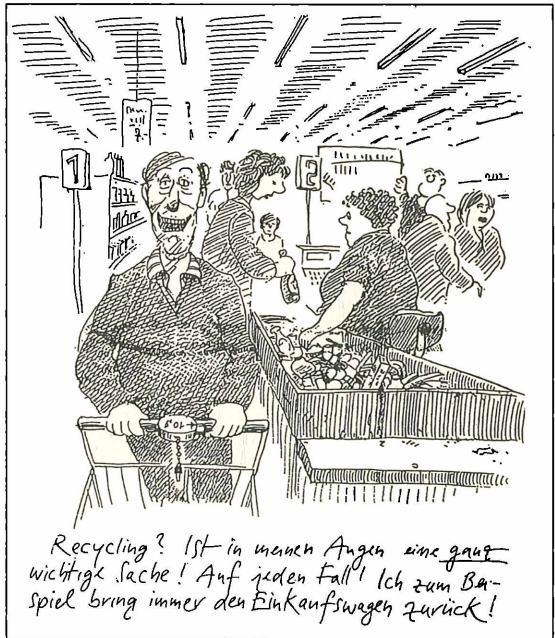 1
2
Recycling? Ist in meinen Augen eine ganz
wichtige Sache! Auf jeden Fall! Ich zum Bei-
spiel bring immer den Einkaufswagen zurück!